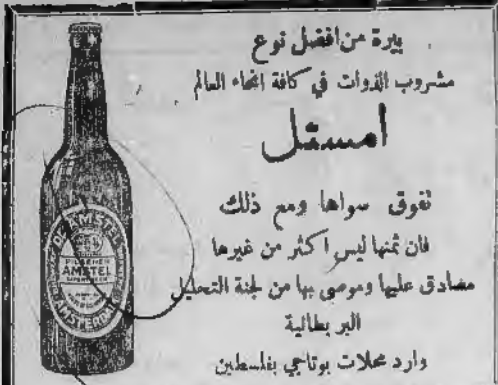 بيرة من افضل نوع
مشروب الذوات في كافة انحاء العالم
امستل
تفوق سواها ومع ذلك
فان ثمنها ليس اكثر من غيرها
مصادق عليها وموصى بها من لجنة التحليل
البريطانية
وارد محلات بوتاجي بفلسطين
DE AMSTEL
PILSENER
AMSTEL
AMSTERDAM